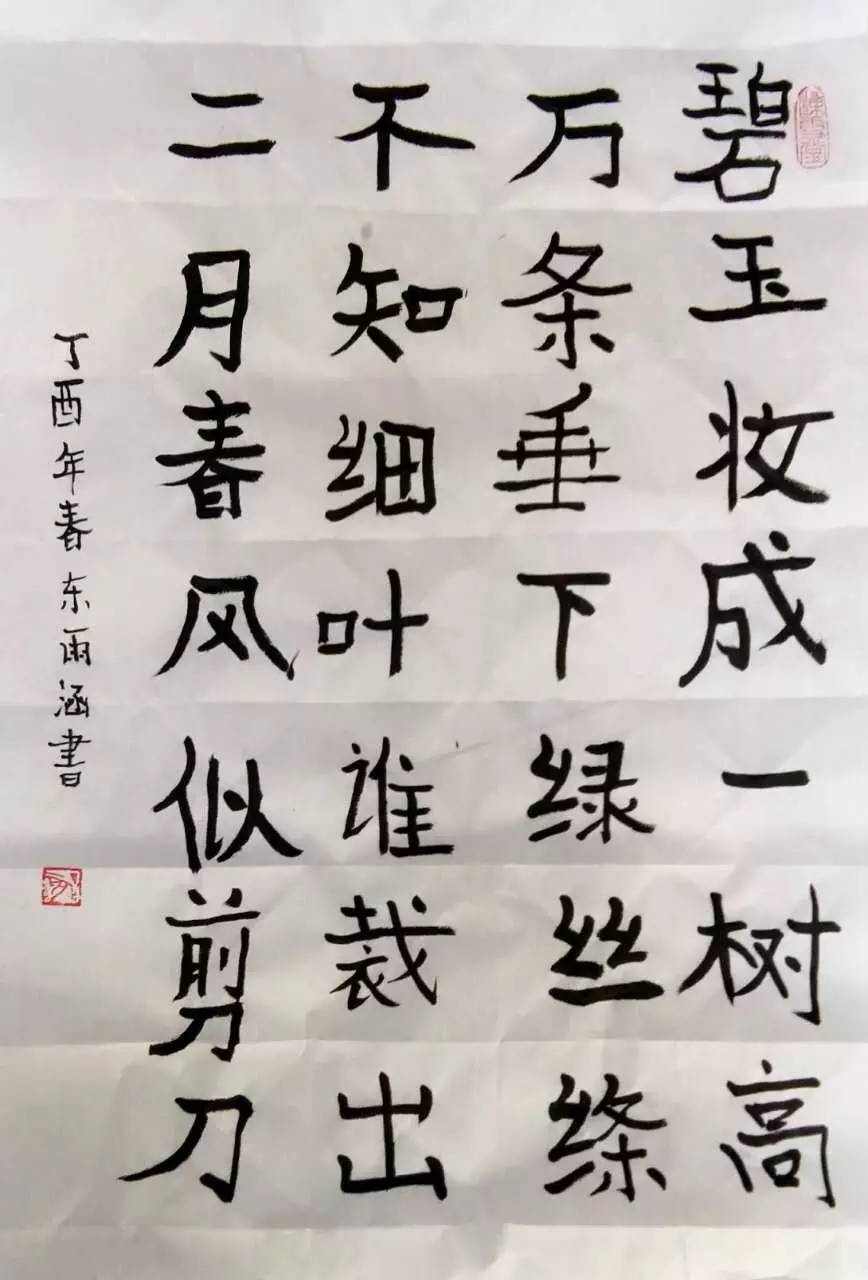 碧玉妆成一树高
万条垂下绿丝绦
不知细叶谁裁出
二月春风似剪刀
丁酉年春东雨涵书